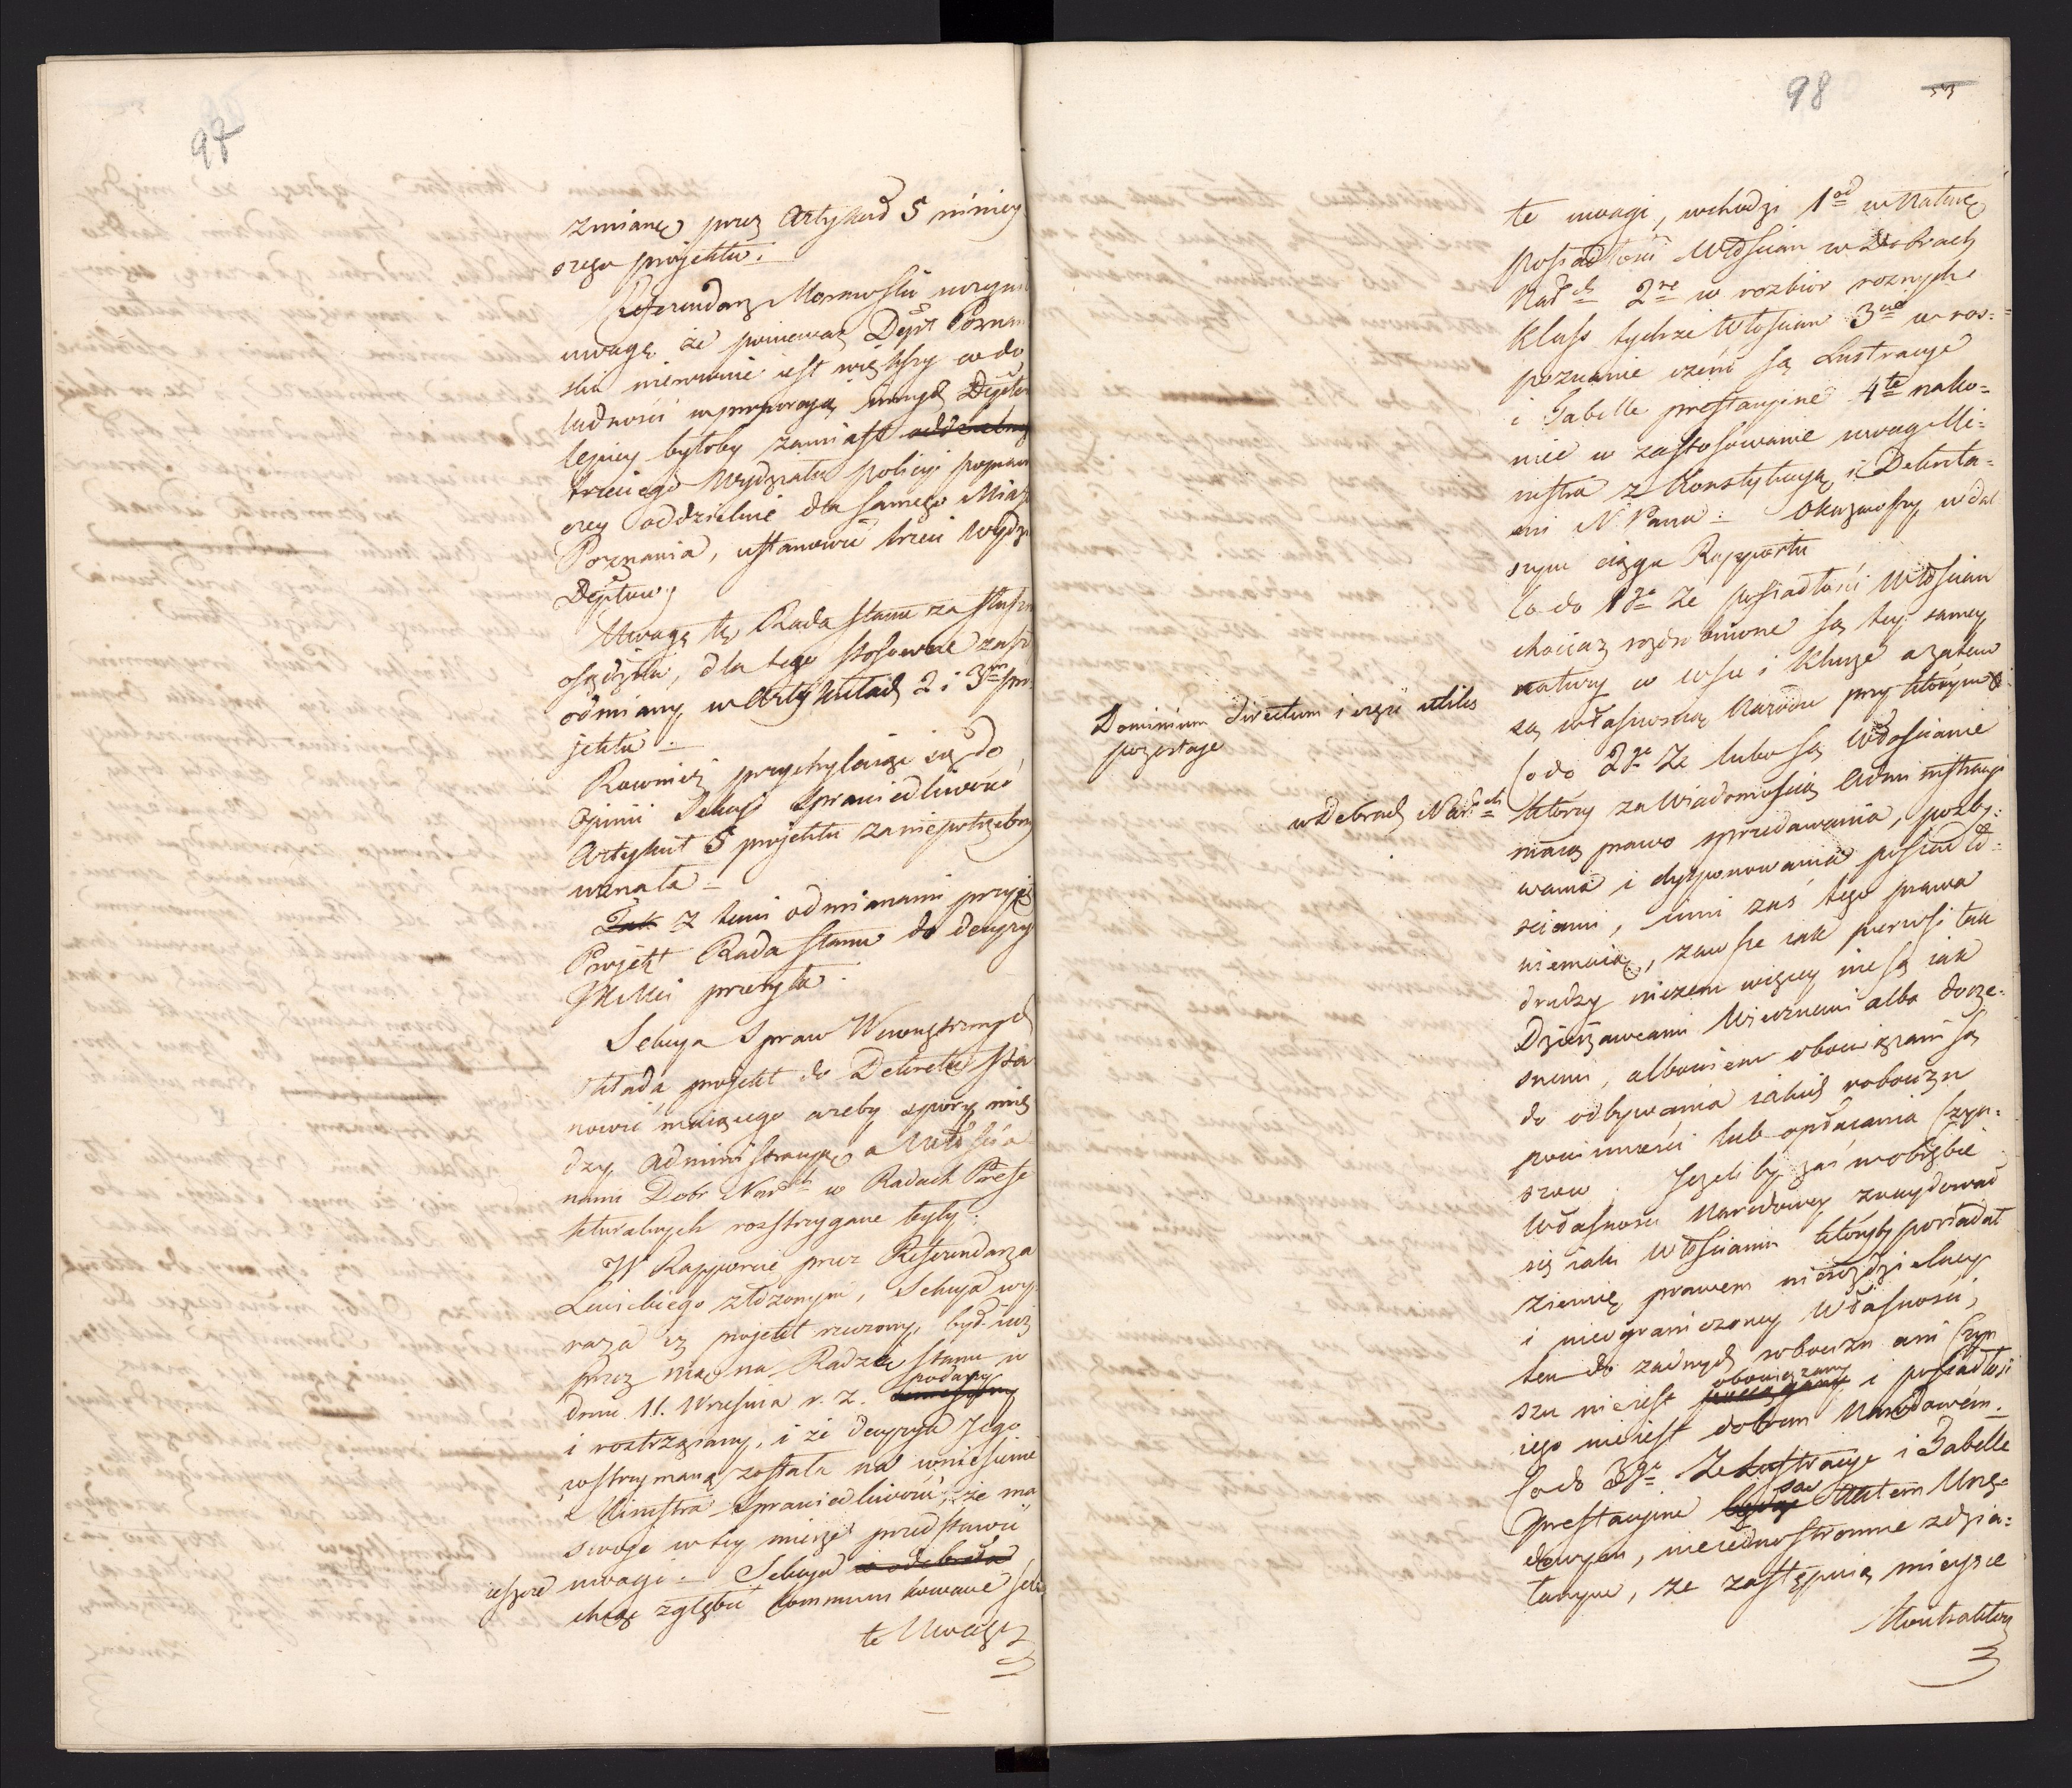 97
zmianę przez Artykuł 5 niniey
szego projektu.
Referendarz Morawski uczynił
uwagę że ponieważ Dept Poznań
ski nierównie iest większy co do
ludności w proporcyą innych Deptów
lepiey byłoby zamiast oddzielney
trzeciego Wydziału policyi poznań
oney oddzielnie dla samego Miasta
Poznania, ustanowić trzeci Wydz
Deptowy
Uwagę tę Rada Stanu za słuszną
osądziła, dla tego stosowne zaszły
odmiany w Artykułach 2 i 3m pro
jektu.
Rownież przychylaiąc się do
Opinii Sekcyi Sprawiedliwości
Artykuł 5 projektu za niepotrzebny
uznała
Tak Z temi odmianami przyięty
Projekt Rada Stanu do decyzyi
JKMci przesyła.
Sekcya Spraw Wewnętrznych
składa projekt do Dekretu stano
nowić maiącego ażeby spory mię
dzy Administracyą a Włościa
nami Dobr Narch w Radach Prefe
kturalnych rozstrzygane były.
W Rapporcie przez Referendarza
Lewickiego złożonym, Sekcya wy
raża iż projekt rzeczony, był iuż
przez nią na Radzie Stanu w
dniu 11. Września r. z. podany
i roztrząsany, i że decyzya Jego
wstrzymaną została na wniesienie
Ministra Sprawiedliwości, że ma
swoie w tey mierze przedstawić
ieszcze uwagi. Sekcya odebrała
chcąc zgłębić kommunikowane sobie
te Uwagi
98
te uwagi, wchodzi 1od w Naturę
posiadłości Włościan w Dobrach
Narch 2re w rozbior rożnych
Klass tychże Włościan 3cie w roz=
poznanie czem są Lustracye
i Tabelle prestacyine 4te nako=
niec w zastosowanie uwag Mi=
nistra z Konstytucyą i Dekreta=
mi N. Pana. Okazawszy w dal
szym ciągu Rapportu
Co do 1go Że posiadłości Włościan
chociaz rozdrobnione są tey samey
natury co wsie i klucze a zatem
są własnością Narodu przy którym
Dominium directum i część utilis
pozostaie
Co do 2go Że lubo są Włościanie
w Dobrach Narch
którzy za wiadomością Administracyi
maią prawo sprzedawania, pozby=
wania i dysponowania posiadło=
ściami, inni zaś tego prawa
niemaią, zawsze iak pierwsi tak
drudzy niczem więcey nie są iak
Dzierżawcami Wiecznemi albo docze=
snemi, albowiem obowiązani są
do odbywania iakich robocizn
powinności lub opłacania Czyn=
szow. Jeżeli by zaś w obrębie
Własności Narodowey znaydował
się iaki Włościanin któryby posiadał
ziemię prawem nierozdzielney
i nieograniczoney Własności,
ten do żadnych robocizn ani Czyn
szu nie iest obowiązany i posiadłość
iego nie iest dobrem Narodowém.
Co do 3go Że Lustracye i Tabelle
prestacyine są Aktem Urzę=
dowym, nie iednostronnie zdzia=
łanym, że zastępuią mieysce
Kontraktow